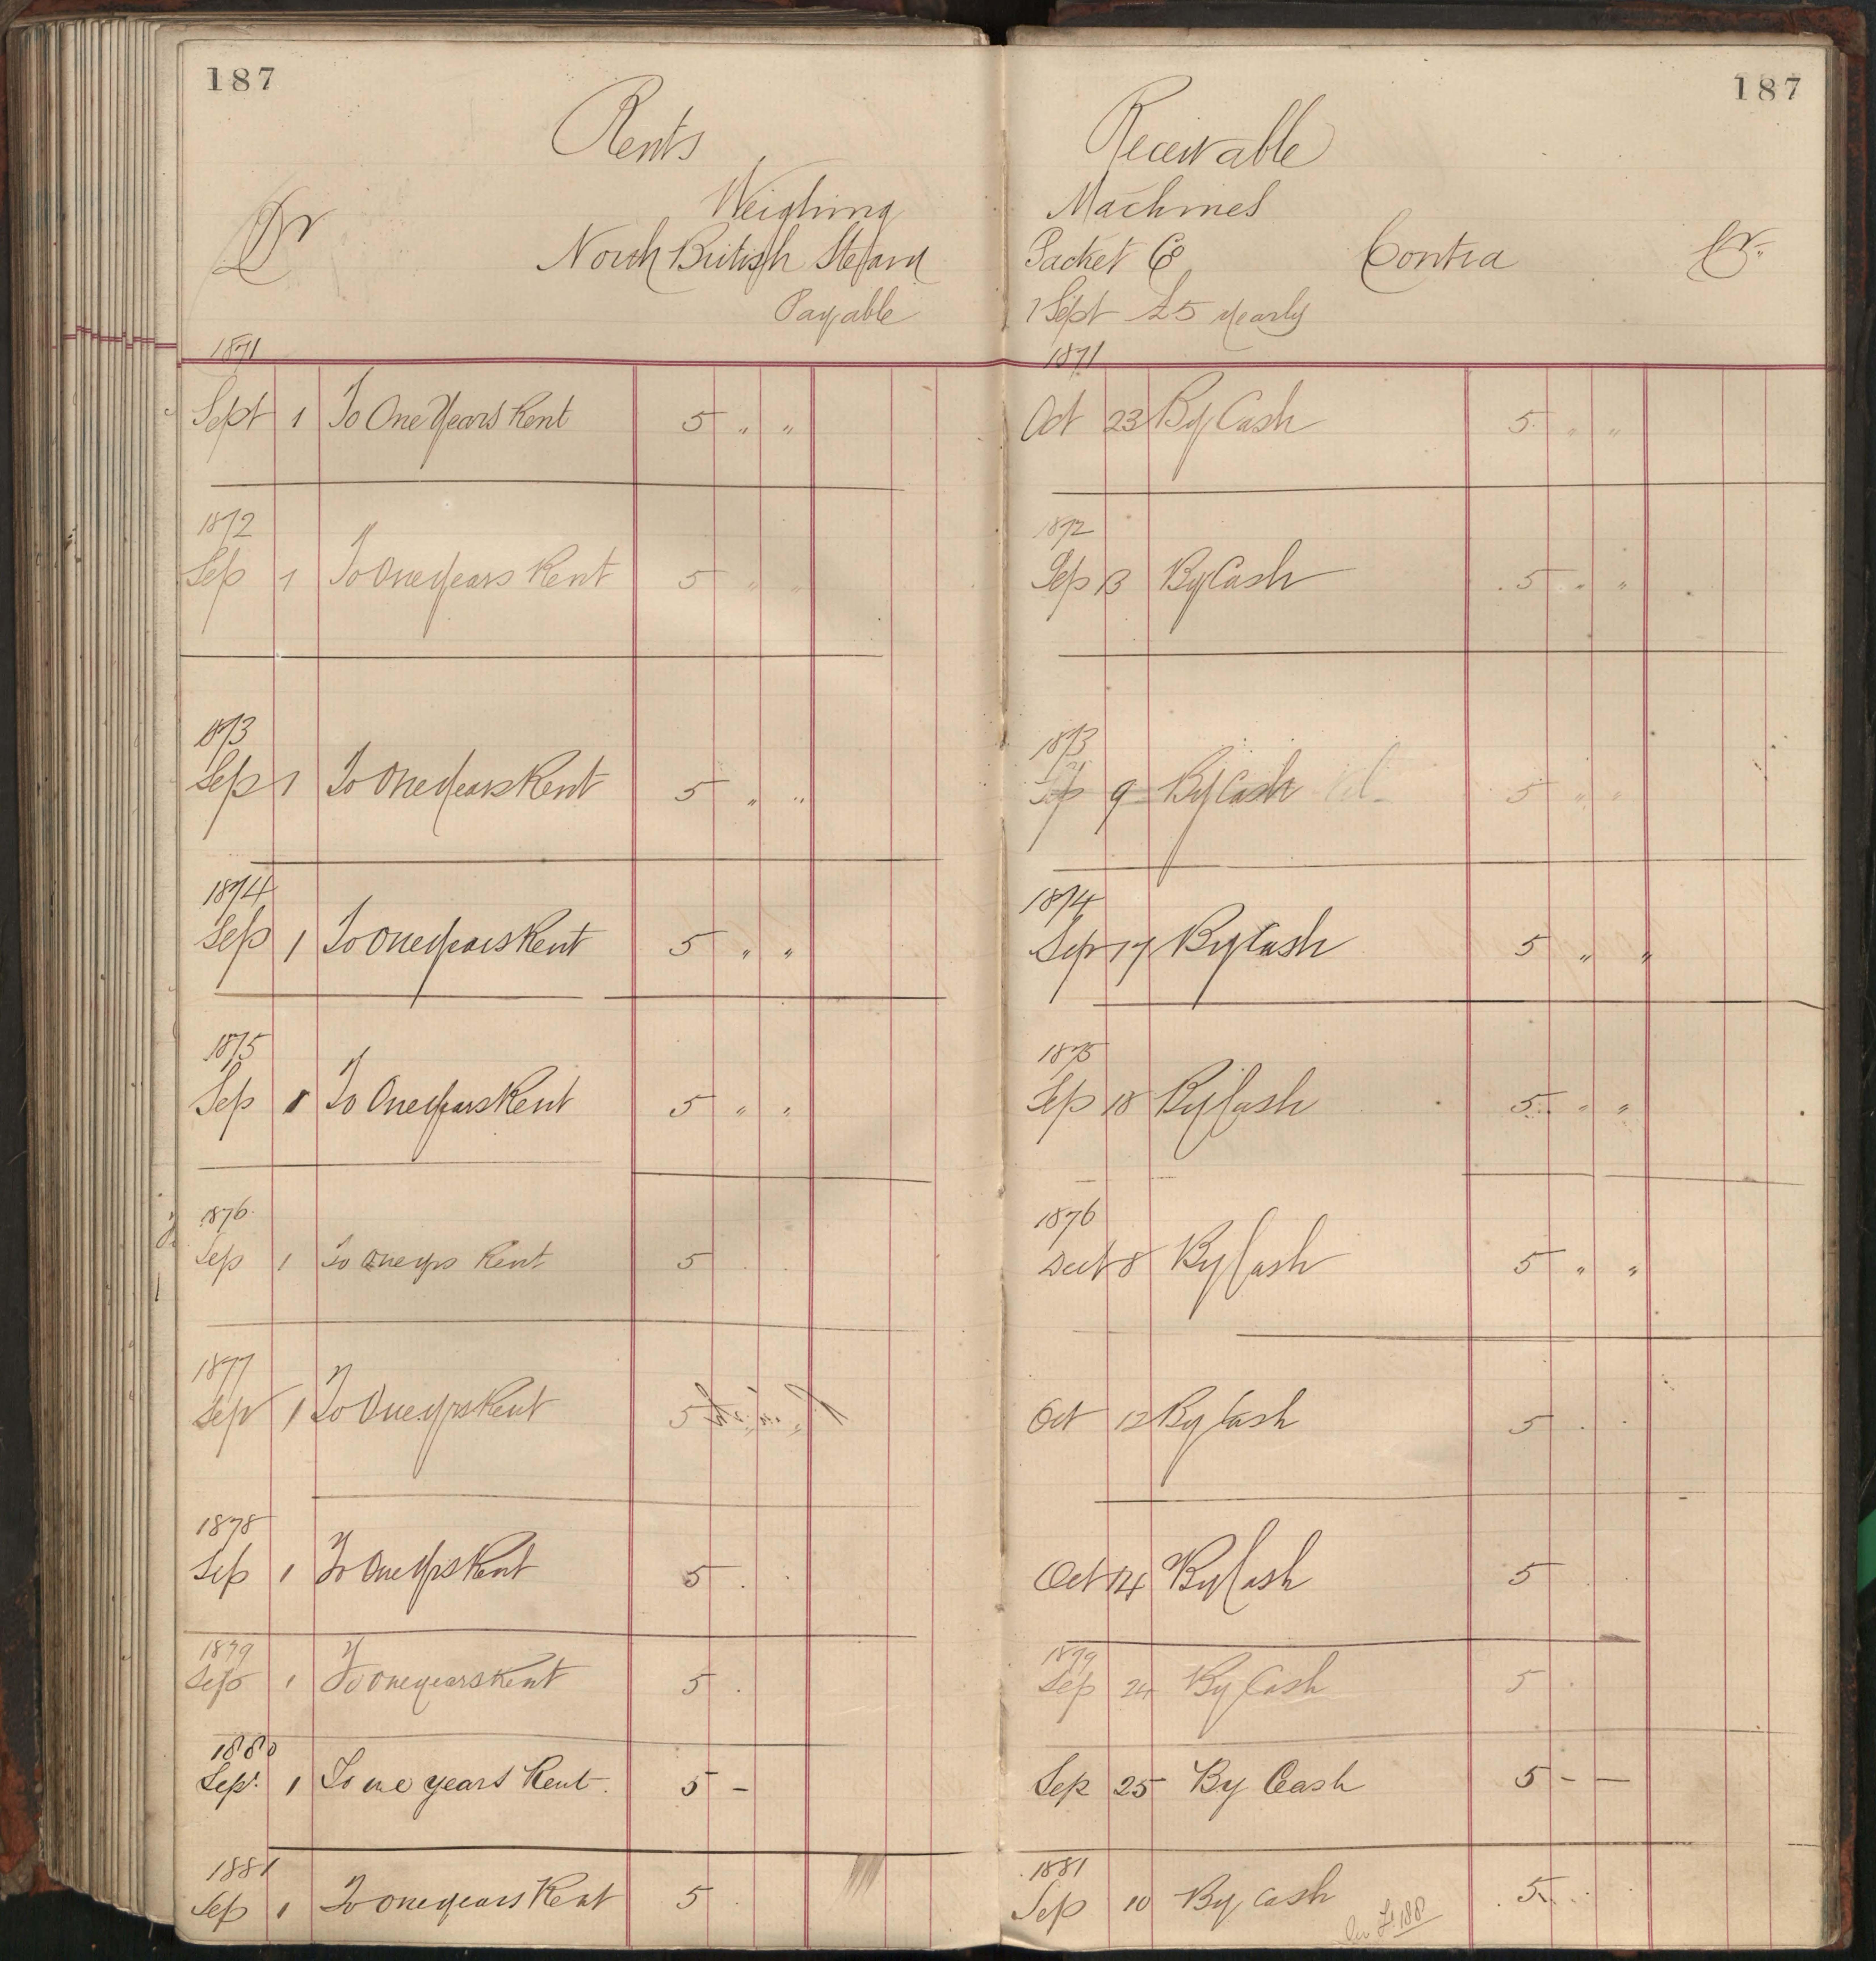 187
Rents
Weighing
Dr North British Steam
Payable
1871
Sept 1 To One Years Rent 5 " "
1872
Sep 1 To One years Rent 5 " "
1873
Sep 1 To One years Rent 5 " "
1874
Sep 1 To One years Rent 5 " "
1875
Sep 1 To One years Rent 5 " "
1876
Sep 1 To one yrs Rent 5
1877
Sep 1 To One yrs Rent 5
1878
Sep 1 To One Yrs Rent 5 . .
1879
Sep 1 To one years Rent 5 .
1880
Sep. 1 To one years Rent. 5 -
1881
Sep 1 To one years Rent 5 .
187
Receivable
Machines
Packet Co Contra Cr.
1 Sept £5 yearly
1871
Oct 23 By Cash 5 " "
1872
Sep 13 By Cash 5 " "
1873
9 By Cash 5 " "
1874
Sep 17 By Cash 5 " "
1875
Sep 18 By Cash 5 " "
1876
8 By Cash 5 " "
Oct 12 By Cash 5 . .
Oct 14 By Cash 5 . .
1879
Sep 24 By Cash 5 .
Sep 25 By Cash 5 - -
1881
Sep 10 By Cash 5 . .
188